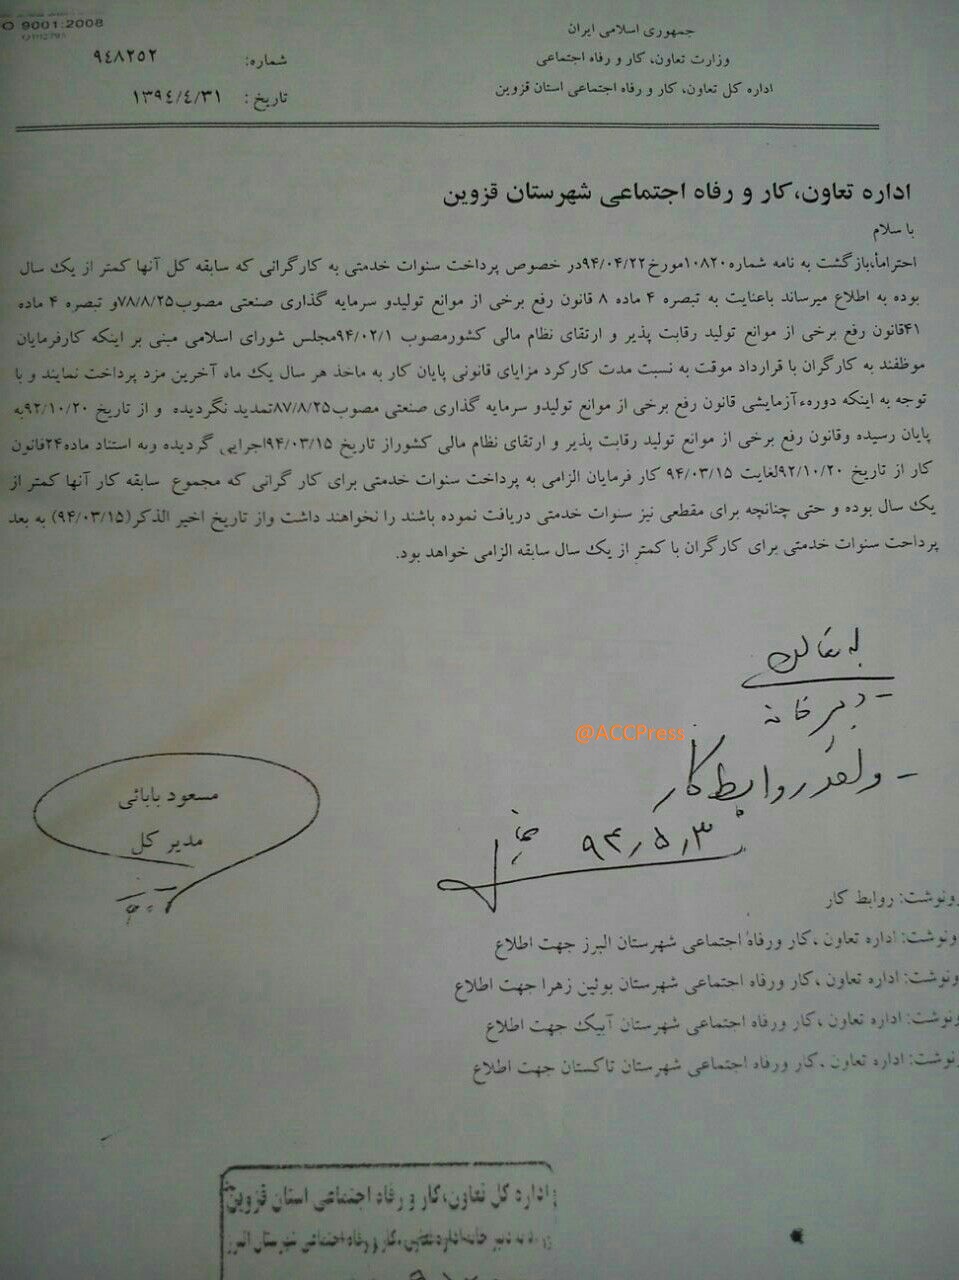 ISO 9001:2008
جمهوری اسلامی ایران
وزارت تعاون، کار و رفاه اجتماعی
اداره کل تعاون، کار و رفاه اجتماعی استان قزوین
شماره: ۹۴۸۲۵۲
تاریخ: ۱۳۹٤/٤/۳۱
اداره تعاون،کار و رفاه اجتماعی شهرستان قزوین
با سلام
احتراماً،بازگشت به نامه شماره۱۰۸۲۰مورخ۹۴/۰۴/۲۲در خصوص پرداخت سنوات خدمتی به کارگرانی که سابقه کل آنها کمتر از یک سال
بوده به اطلاع میرساند باعنایت به تبصره ۴ ماده ۸ قانون رفع برخی از موانع تولیدو سرمایه گذاری صنعتی مصوب۷۸/۸/۲۵و تبصره ۴ ماده
۴۱قانون رفع برخی از موانع تولید رقابت پذیر و ارتقای نظام مالی کشورمصوب ۹۴/۰۲/۱مجلس شورای اسلامی مبنی بر اینکه کارفرمایان
موظفند به کارگران با قرارداد موقت به نسبت مدت کارکرد مزایای قانونی پایان کار به ماخذ هر سال یک ماه آخرین مزد پرداخت نمایند و با
توجه به اینکه دوره‌ء‌آزمایشی قانون رفع برخی از موانع تولیدو سرمایه گذاری صنعتی مصوب۸۷/۸/۲۵تمدید نگردیده و از تاریخ ۹۲/۱۰/۲۰به
پایان رسیده وقانون رفع برخی از موانع تولید رقابت پذیر و ارتقای نظام مالی کشوراز تاریخ ۹۴/۰۳/۱۵اجرایی گردیده وبه استناد ماده۲۴قانون
کار از تاریخ ۹۲/۱۰/۲۰لغایت ۹۴/۰۳/۱۵ کار فرمایان الزامی به پرداخت سنوات خدمتی برای کار گرانی که مجموع سابقه کار آنها کمتر از
یک سال بوده و حتی چنانچه برای مقطعی نیز سنوات خدمتی دریافت نموده باشند را نخواهند داشت واز تاریخ اخیر الذکر(۹۴/۰۳/۱۵) به بعد
پرداخت سنوات خدمتی برای کارگران با کمتر از یک سال سابقه الزامی خواهد بود.
- دبیرخانه
@ACCPress
روابط کار
۹۴/۵/۳
مسعود بابائی
مدیر کل
رونوشت: روابط کار
رونوشت: اداره تعاون ،کار ورفاه اجتماعی شهرستان البرز جهت اطلاع
رونوشت: اداره تعاون ،کار ورفاه اجتماعی شهرستان بوئین زهرا جهت اطلاع
رونوشت: اداره تعاون ،کار ورفاه اجتماعی شهرستان آبیک جهت اطلاع
رونوشت: اداره تعاون ،کار ورفاه اجتماعی شهرستان تاکستان جهت اطلاع
اداره کل تعاون،کار و رفاه اجتماعی استان قزوین